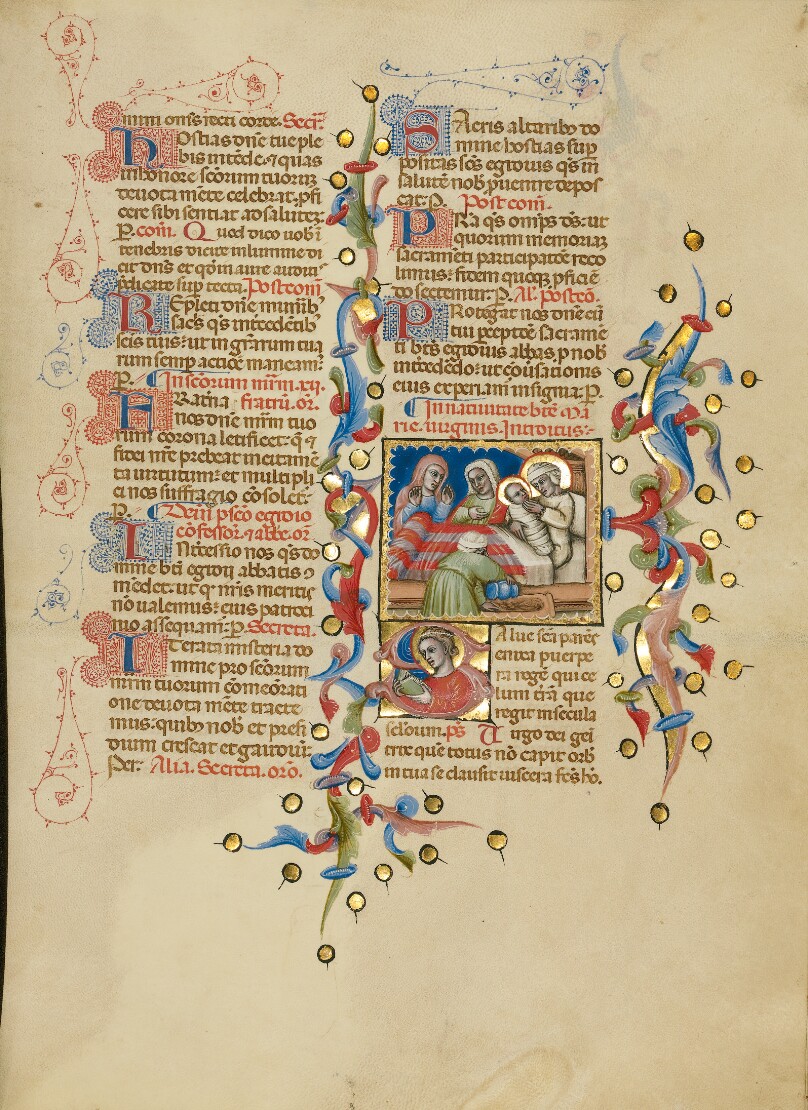 mini om̄s recti corde. Secr̄.
Hostias dn̄e tue ple
bis intēde. ⁊ quas
in honore sc̄orum tuorū
deuota mēte celebrat. ꝓfi
cere sibi sentiat ad salutez.
P. com̄. Quod dico uob̄ ī
tenebris dicite in lumine di
cit dn̄s et qd̄ in aure auditˢ
p̄dicate sup tecta. Postcom̄
Repleti dn̄e munīb
sac̄s qs̄ intercedētib
sc̄is tuis: ut in gr̄arum tua
rum semp actiōe maneam:
P. In sc̄orum mr̄m. xii.
fratrū. or̄.
nos dn̄e mr̄m tuo
rum corona letificet: q̄ ⁊
fidei nr̄e prebeat incitamē
ta uirtutum: et multipli
ci nos suffragio cōsolet:
P. De in pso egidio
cōfessor̄. ⁊ abbe. or̄
Intercessio nos qs̄ do
mine bt̄i egidii abbatis
medet. ut q̄ nr̄is meritis
nō ualemus: eius patroci
nio assequam: P. Secreta.
Iterata misteria do
mine pro sc̄orum
mr̄m tuorum cōmēorati
one deuota mēte tracte
mus: quib nob̄ et presi
dium crescat et gaudiū:
Per: Alia. Secreta. oro.
Sacris altarib do
mine hostias sup
positas sc̄s egidius qs̄ in
salutē nob̄ puenire depos
cat. P. Post com̄.
Pra qs̄ om̄ps ds̄: ut
quorum memoriaz
sacramēti participatōe reco
limus: fidem quoqz ꝓficiē
do sectemur. P. Al. postcō.
Protegat nos dn̄e cū
tui pceptōe sacramē
ti bt̄s egidius abbas. p nob
intercedēdo: ut cōuersationis
eius experiam insignia: P.
In natiuitate bt̄e Ma
rie. uirginis. Introitus:
Salue sc̄a parēs
enixa puerpe
ra regē qui ce
lum tr̄ā que
regit in secula
seclorum. ps̄ Uirgo dei gēi
trix que totus nō capit orb
in tua se clausit uiscera fc̄s hō.